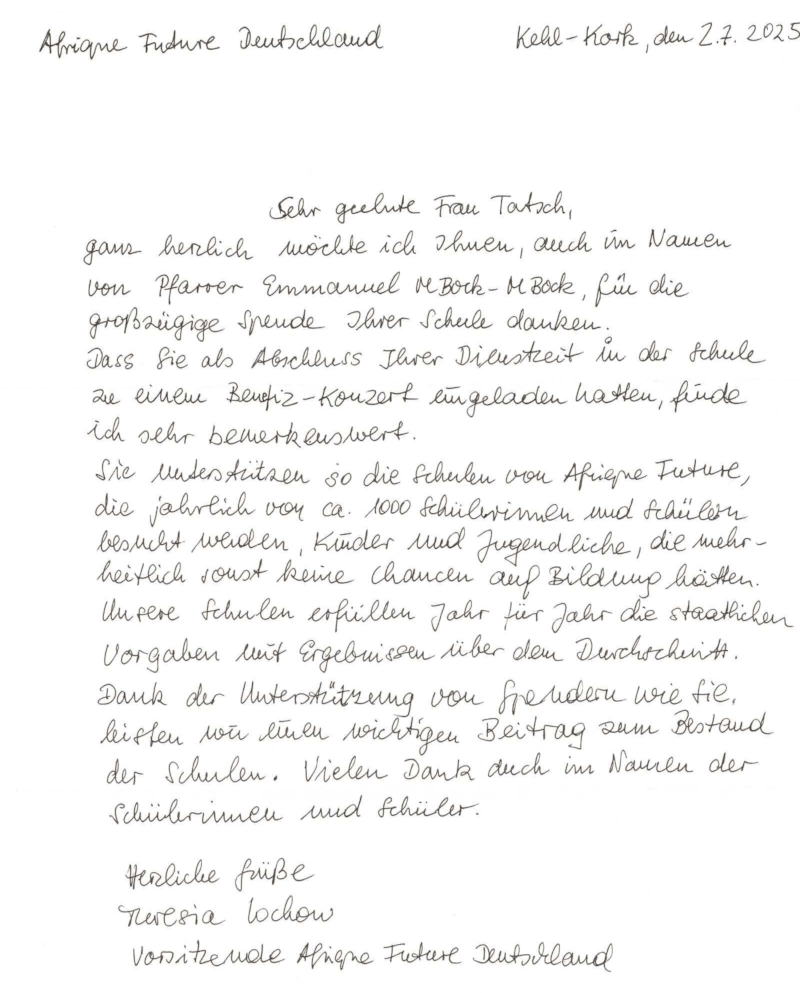 Afrique Future Deutschland
Kehl-Kork, den 2.7.2025
Sehr geehrte Frau Tatsch,
ganz herzlich möchte ich Ihnen, auch im Namen
von Pfarrer Emmanuel M Bock - M Bock, für die
großzügige Spende Ihrer Schule danken.
Dass Sie als Abschluss Ihrer Dienstzeit in der Schule
zu einem Benefiz-Konzert eingeladen hatten, finde
ich sehr bemerkenswert.
Sie unterstützen so die Schulen von Afrique Future,
die jährlich von ca. 1000 Schülerinnen und Schülern
besucht werden, Kinder und Jugendliche, die mehr-
heitlich sonst keine Chancen auf Bildung hätten.
Unsere Schulen erfüllen Jahr für Jahr die staatlichen
Vorgaben mit Ergebnissen über dem Durchschnitt.
Dank der Unterstützung von Spendern wie Sie,
leisten wir einen wichtigen Beitrag zum Bestand
der Schulen. Vielen Dank auch im Namen der
Schülerinnen und Schüler.
Herzliche Grüße
Theresia Lochow
Vorsitzende Afrique Future Deutschland